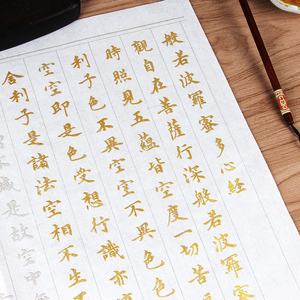 般若波羅蜜多心經
觀自在菩薩行深般若波羅
時照見五蘊皆空度一切苦
利子色不異空空不異色色
空空即是色受想行識亦
舍利子是諸法空相不生
減是故空中